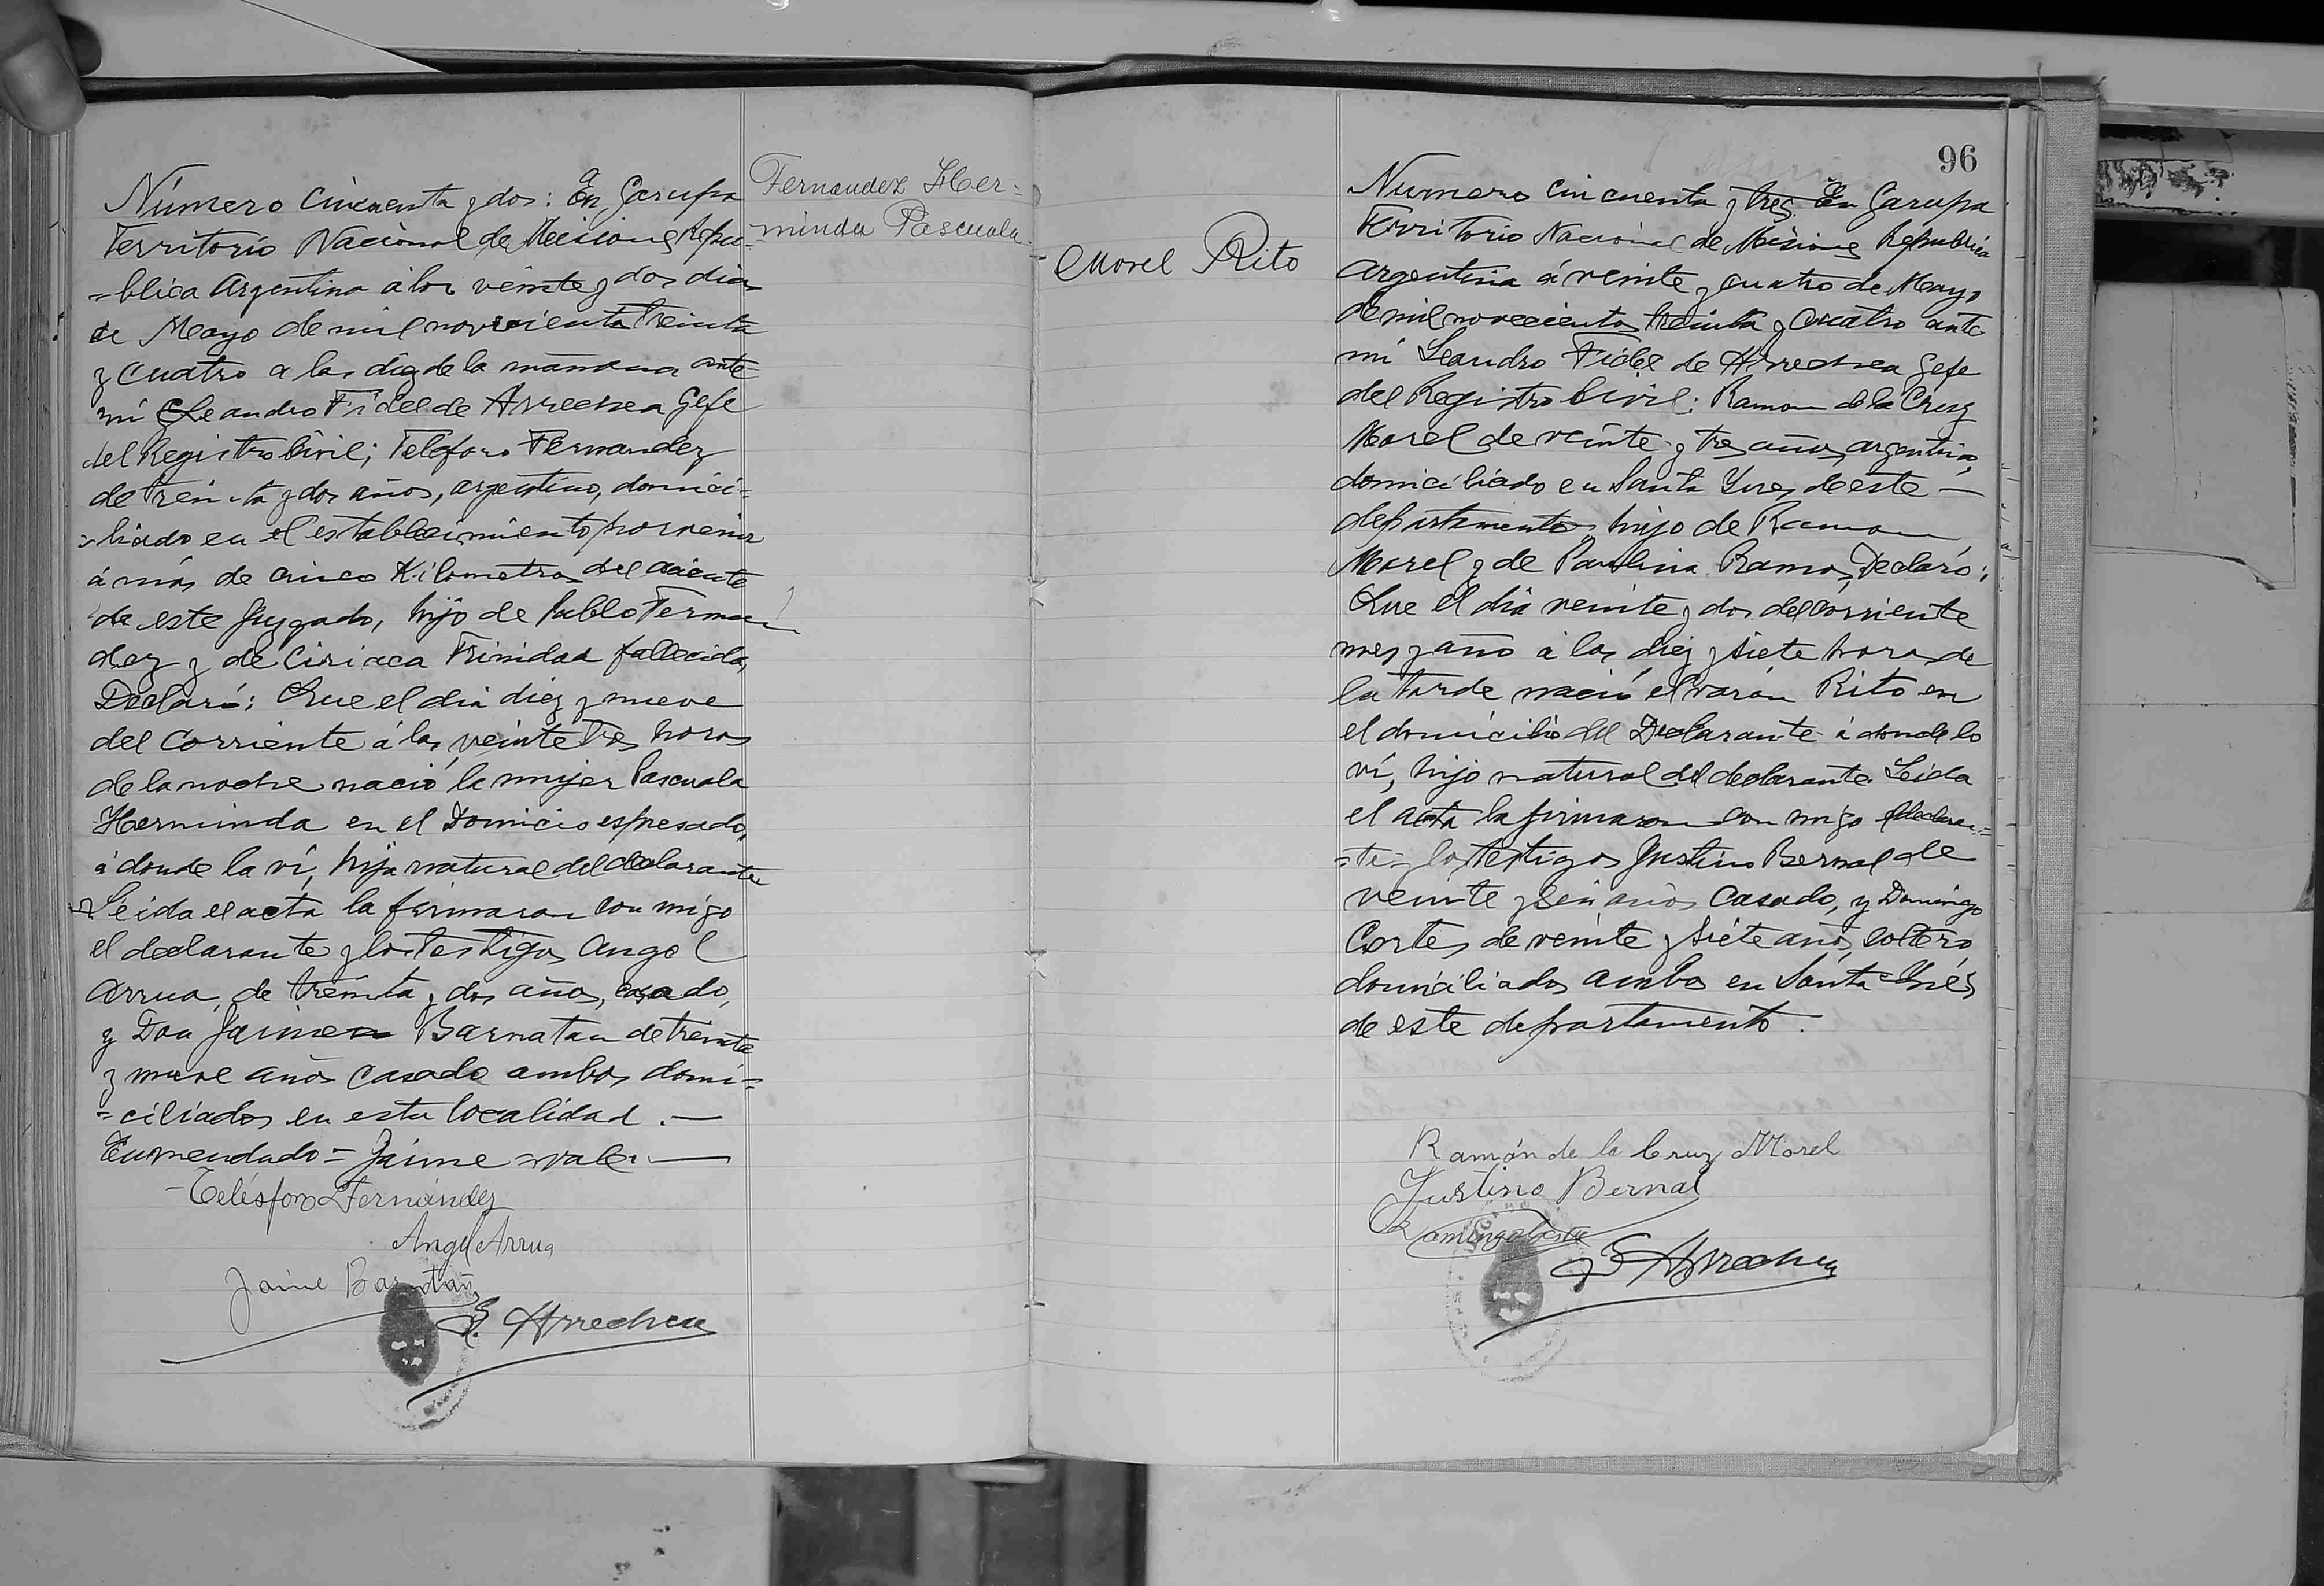 Número Cincuenta y dos: En Garupa
Territorio Nacional de Misiones Repu-
=blica Argentina á los veinte y dos dias
de Mayo de mil novecientos treinta
y cuatro a las diez de la mañana ante
mi Leandro Fidel de Arrechea Gefe
del Registro Civil; Telesforo Fernandez
de treinta y dos años, argentino, domici-
=liado en el establecimiento porvenir
á más de cinco Kilometros del asiento
de este Juzgado, hijo de Pablo Fernan
dez y de Ciriaca Trinidad fallecida,
Declaró: Que el dia diez y nueve
del Corriente á las veinte tres horas
de la noche nació la mujer Pascuala
Herminda en el Domicio espresado,
á donde la ví, hija natural del declarante
Leida el acta la firmaron con migo
el declarante y los testigos Angel
Arrua, de treinta y dos años, casado,
y Don Jaime Barnatan de treinta
y nueve años casado ambos domi-
=ciliados en esta localidad.—
Enmendado = Jaime = vale.—
Telésforo Fernández
Angel Arrua
Jaime Barnatán
L. Arrechea
Fernandez Her=
=minda Pascuala.
Morel Rito
96
Numero cincuenta y tres. En Garupa
Territorio Nacional de Misiones Republica
Argentina á veinte y cuatro de Mayo
de mil novecientos treinta y cuatro ante
mi Leandro Fidel de Arrechea Gefe
del Registro Civil: Ramon de la Cruz
Morel de veinte y tres años, argentino,
domiciliado en Santa Ynes, de este —
departamento, hijo de Ramon
Morel y de Paulina Ramos, Declaró:
Que el dia veinte y dos del corriente
mes y año á las diez y siete horas de
la tarde nació el varón Rito en
el domicilio del Declarante á donde lo
ví, hijo natural del declarante. Leida
el acta la firmaron con migo el declaran=
=te y los testigos Justino Bernal de
veinte y seis años Casado, y Domingo
Cortes, de veinte y siete años, soltero
domiciliados ambos en Santa Ynés
de este departamento.
Ramón de la Cruz Morel
Justino Bernal
L. Arrechea